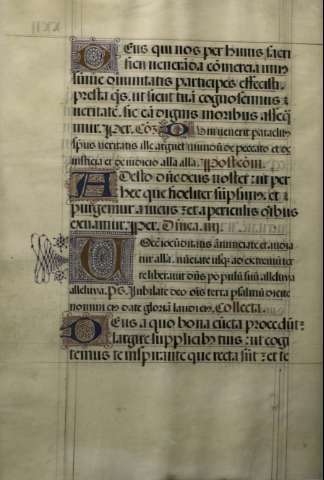 Deus qui nos per huius sacri
ficii veneranda comercia uni
sume divinitatis participes effecisti:
presta qs. ut sicut tuā cognoscimus
veritatē. sic eā dignis moribus asseq
mur. Per. Cō. Dum venerit paraclitus
spūs veritatis ille arguet mundū de peccato et de
iusticia et de iudicio alla alla. Postcōm.
Adesto dñe deus noster: ut per
hec que fideliter sūpsimus. et
purgemur a viciis: et a periculis oībus
exuamur. Per. Dñica
Vocē iocunditatis annunciate et audia
tur alla. nūciate usq ad extremū ter
re liberavit dñs populū suū alleluia
alleluia. Ps. Iubilate deo oīs terra psalmū dicite
nomini eius date gloriā laudi eius. Collecta.
Deus a quo bona cūcta procedūt:
largire supplicibus tuis: ut cogi
temus te inspirante que recta sūt: et te